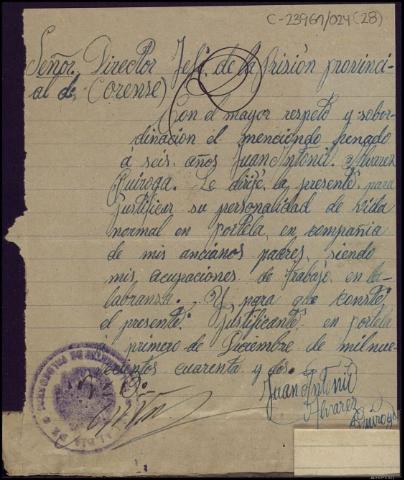 C-23961/024 (28)
Señor Director Jefe de la Prisión provinci-
al de (Orense)
Con el mayor respeto y subor-
dinación el menciondo penado
á seis años Juan Antonio Alvarez
Quiroga. Le dirije la presente para
justificar su personalidad de vida
normal en Portela, en compañia
de mis ancianos padres, siendo
mis acupaciones de trabajo en la
labranza. Y para que conste
el presente justificante en Portela
primero de Diciembre de mil nue-
cientos cuarenta y dos.
Juan Antonio
Alvarez
Quiroga